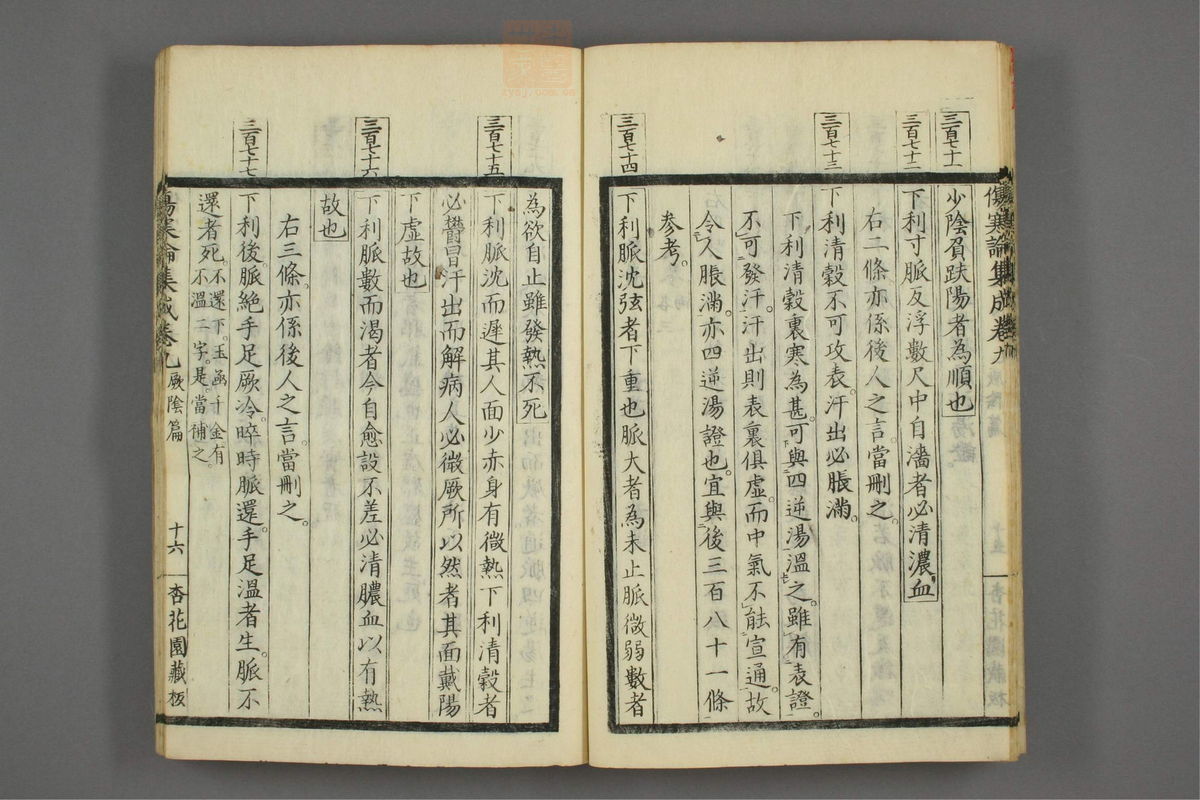 傷寒論集成卷九
三百七十一
少陰負趺陽者為順也
三百七十二
下利寸脈反浮數尺中自濇者必清濃血
右二條亦係後人之言當刪之。
三百七十三
下利清穀不可攻表汗出必脹滿。
下利清穀裏寒為甚。可與四逆湯溫之。雖有表證。
不可發汗。汗出則表裏俱虛。而中氣不能宣通。故
令人脹滿。亦四逆湯證也。宜與後三百八十一條
参考。
三百七十四
下利脈沈弦者下重也脈大者為未止脈微弱數者
為欲自止雖發熱不死
三百七十五
下利脈沈而遲其人面少赤身有微熱下利清穀者
必鬱冒汗出而解病人必微厥所以然者其面戴陽
下虛故也
三百七十六
下利脈數而渴者今自愈設不差必清膿血以有熱
故也
右三條。亦係後人之言。當刪之。
三百七十七
下利後。脈絶手足厥冷。晬時脈還。手足溫者生。脈不
還者死。不還下。玉函千金有
不溫二字。是。當補之。
傷寒論集成卷九 厥陰篇 十六 杏花園藏板